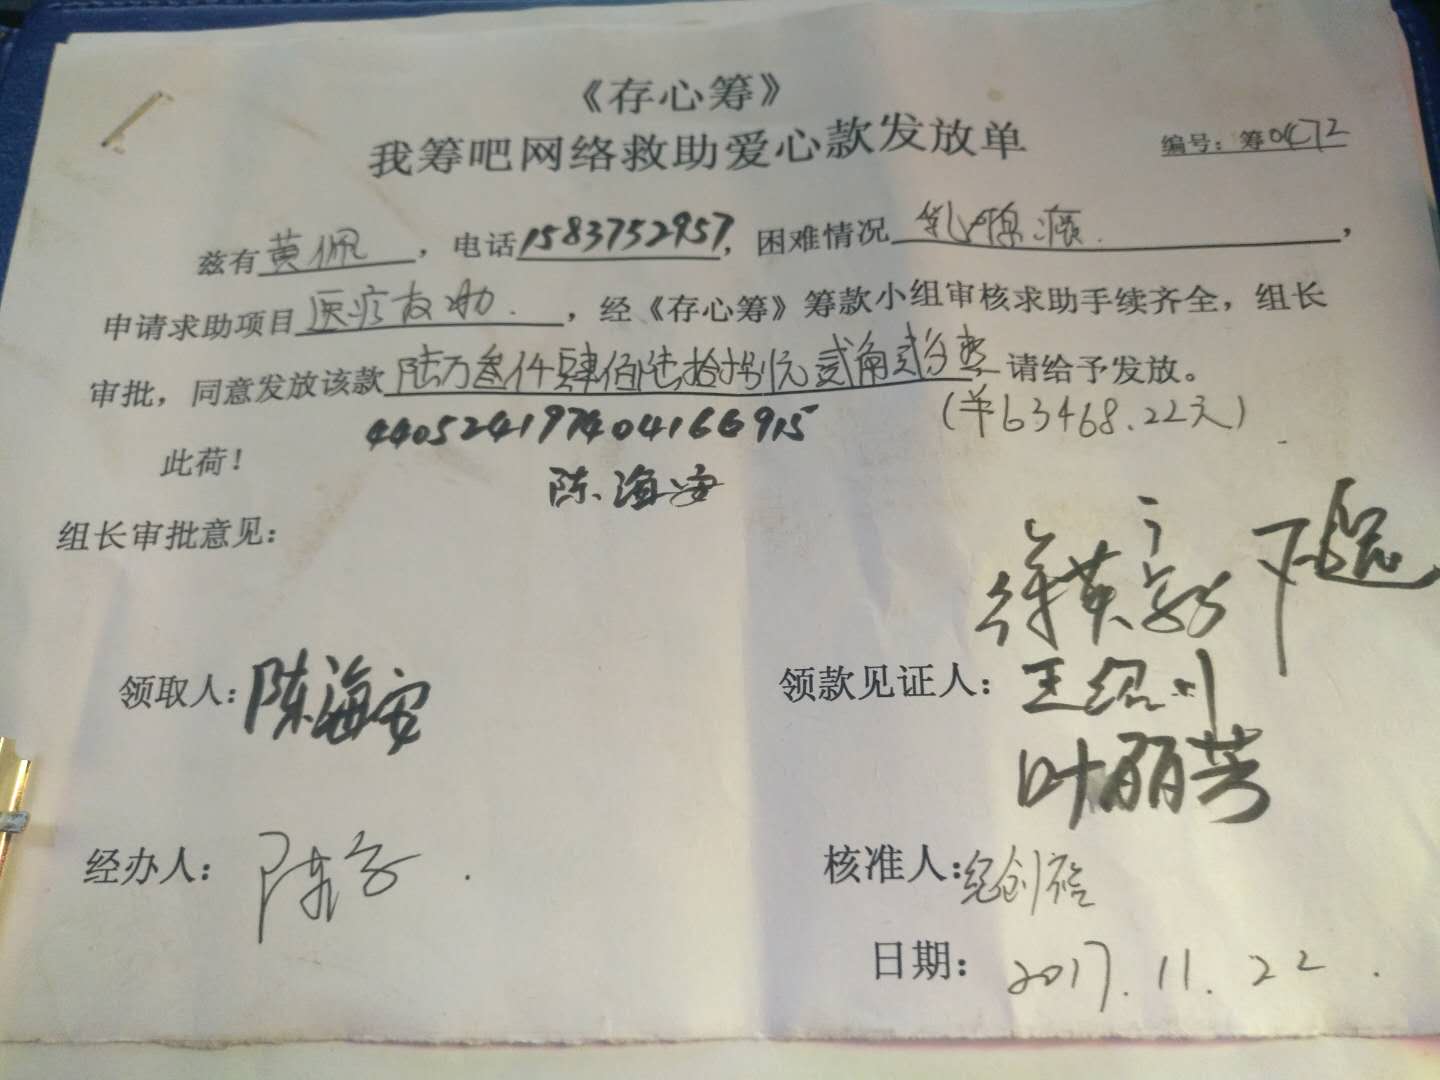 《存心筹》
我筹吧网络救助爱心款发放单
编号：筹0472
兹有黄佩，电话1583752957，困难情况乳腺癌，
申请求助项目医疗救助，经《存心筹》筹款小组审核求助手续齐全，组长
审批，同意发放该款陆万叁仟肆佰陆拾捌元贰角贰分整请给予发放。
(￥63468.22元)
440524197404166915
此荷！
陈海安
组长审批意见：
领取人：陈海安
领款见证人：
王绍川
叶丽芳
经办人：
核准人：纪创裕
日期：2017.11.22